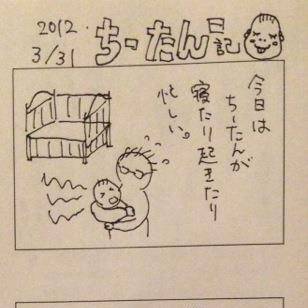 2012.
3/31
ちーたん日記
今日は
ちーたんが
寝たり起きたり
忙しい。